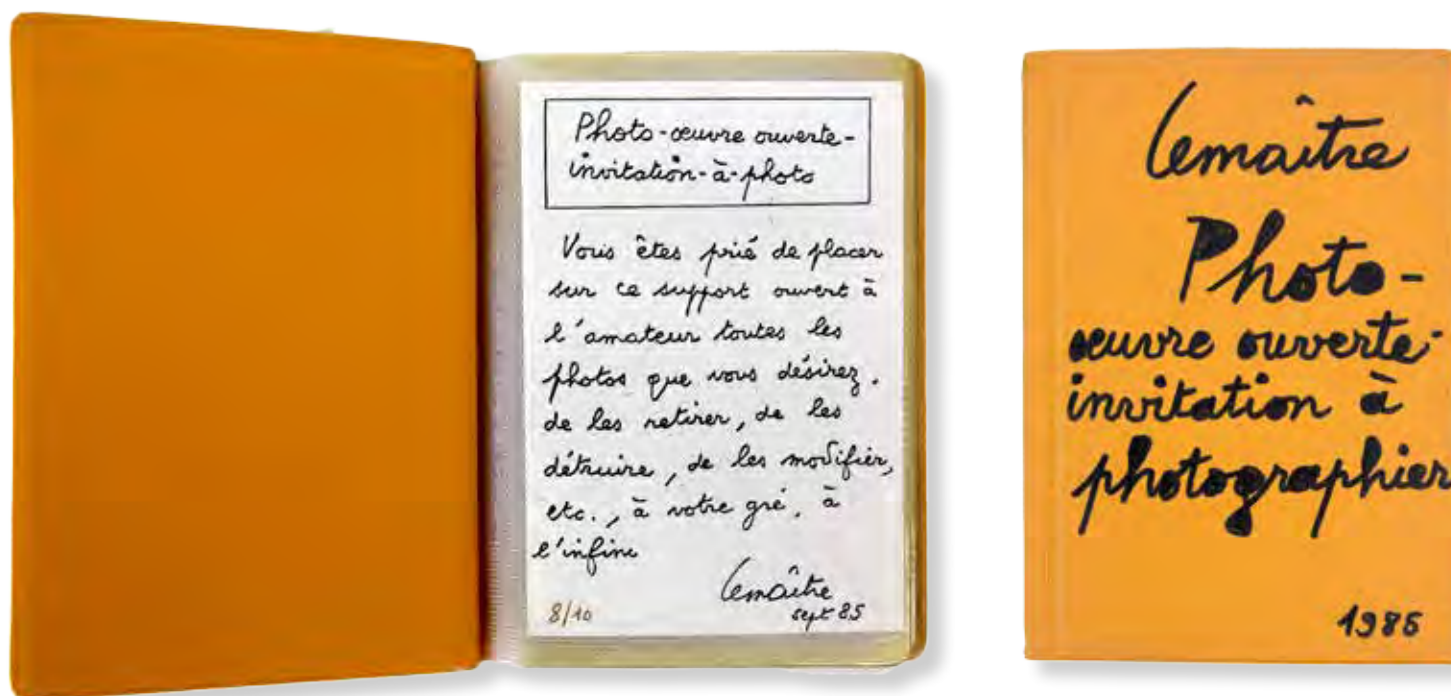 Photo-œuvre ouverte-
invitation-à-photo
Vous êtes prié de placer
sur ce support ouvert à
l'amateur toutes les
photos que vous désirez,
de les retirer, de les
détruire, de les modifier,
etc., à votre gré, à
l'infini
Lemaître
8/10
sept 85
Lemaître
Photo-
œuvre ouverte-
invitation à
photographier
1985